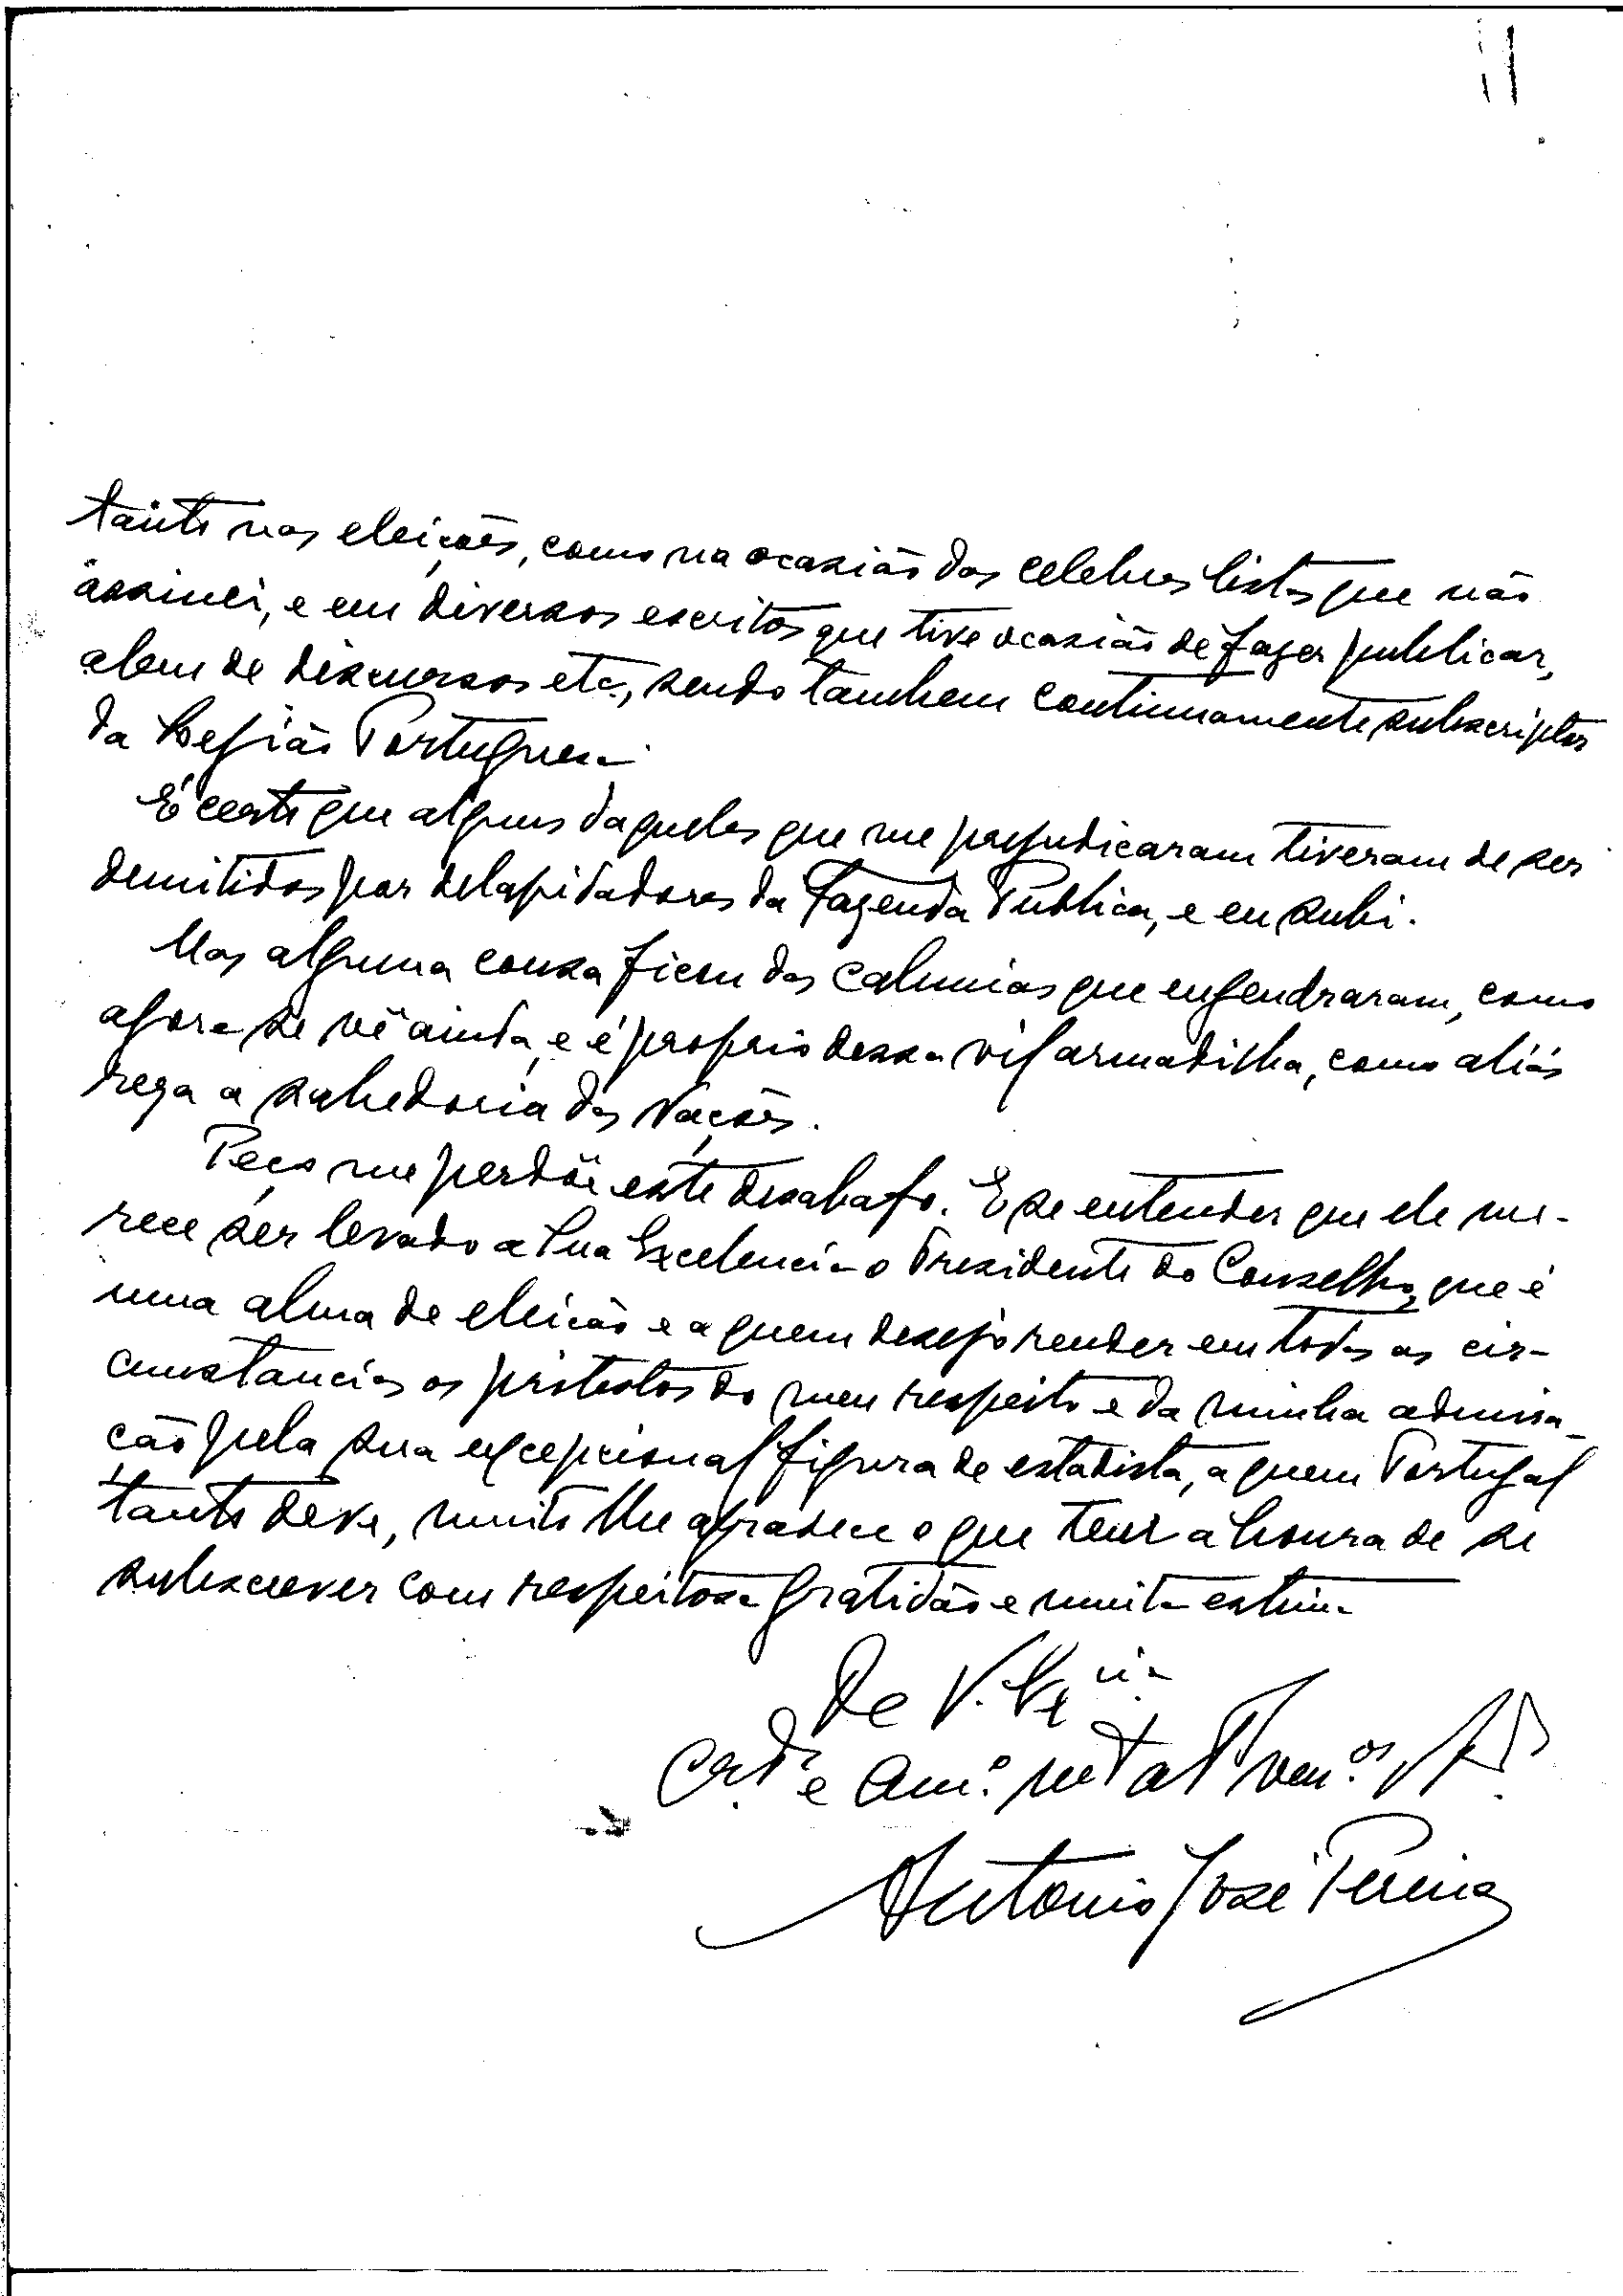 tanto nas eleições, como na ocasião das celebres listas que não
assinei, e em diversos escritos que tive ocasião de fazer publicar,
alem de discursos etc, sendo tambem continuamente subscriptor
da Legião Portuguesa.
É certo que alguns daqueles que me prejudicaram tiveram de ser
demitidos por delapidadores da Fazenda Publica, e eu subi.
Mas alguma cousa ficou das calunias que engendraram, como
agora se vê ainda, e é proprio dessa vil armadilha, como aliás
reza a sabedoria das Nações.
Peço me perdôe este desabafo. E se entender que ele me-
rece ser levado a Sua Excelencia o Presidente do Conselho, que é
uma alma de eleição e a quem desejo render em todas as cir-
cunstancias os protestos do meu respeito e da minha admira-
ção pela sua excepcional figura de estadista, a quem Portugal
tanto deve, muito lhe agradece o que tem a honra de se
subscrever com respeitosa gratidão e muita estima
De V. Exᶜⁱᵃ
e Am.º mᵗ atᵗ ven.ᵒʳ
Antonio José Pereira